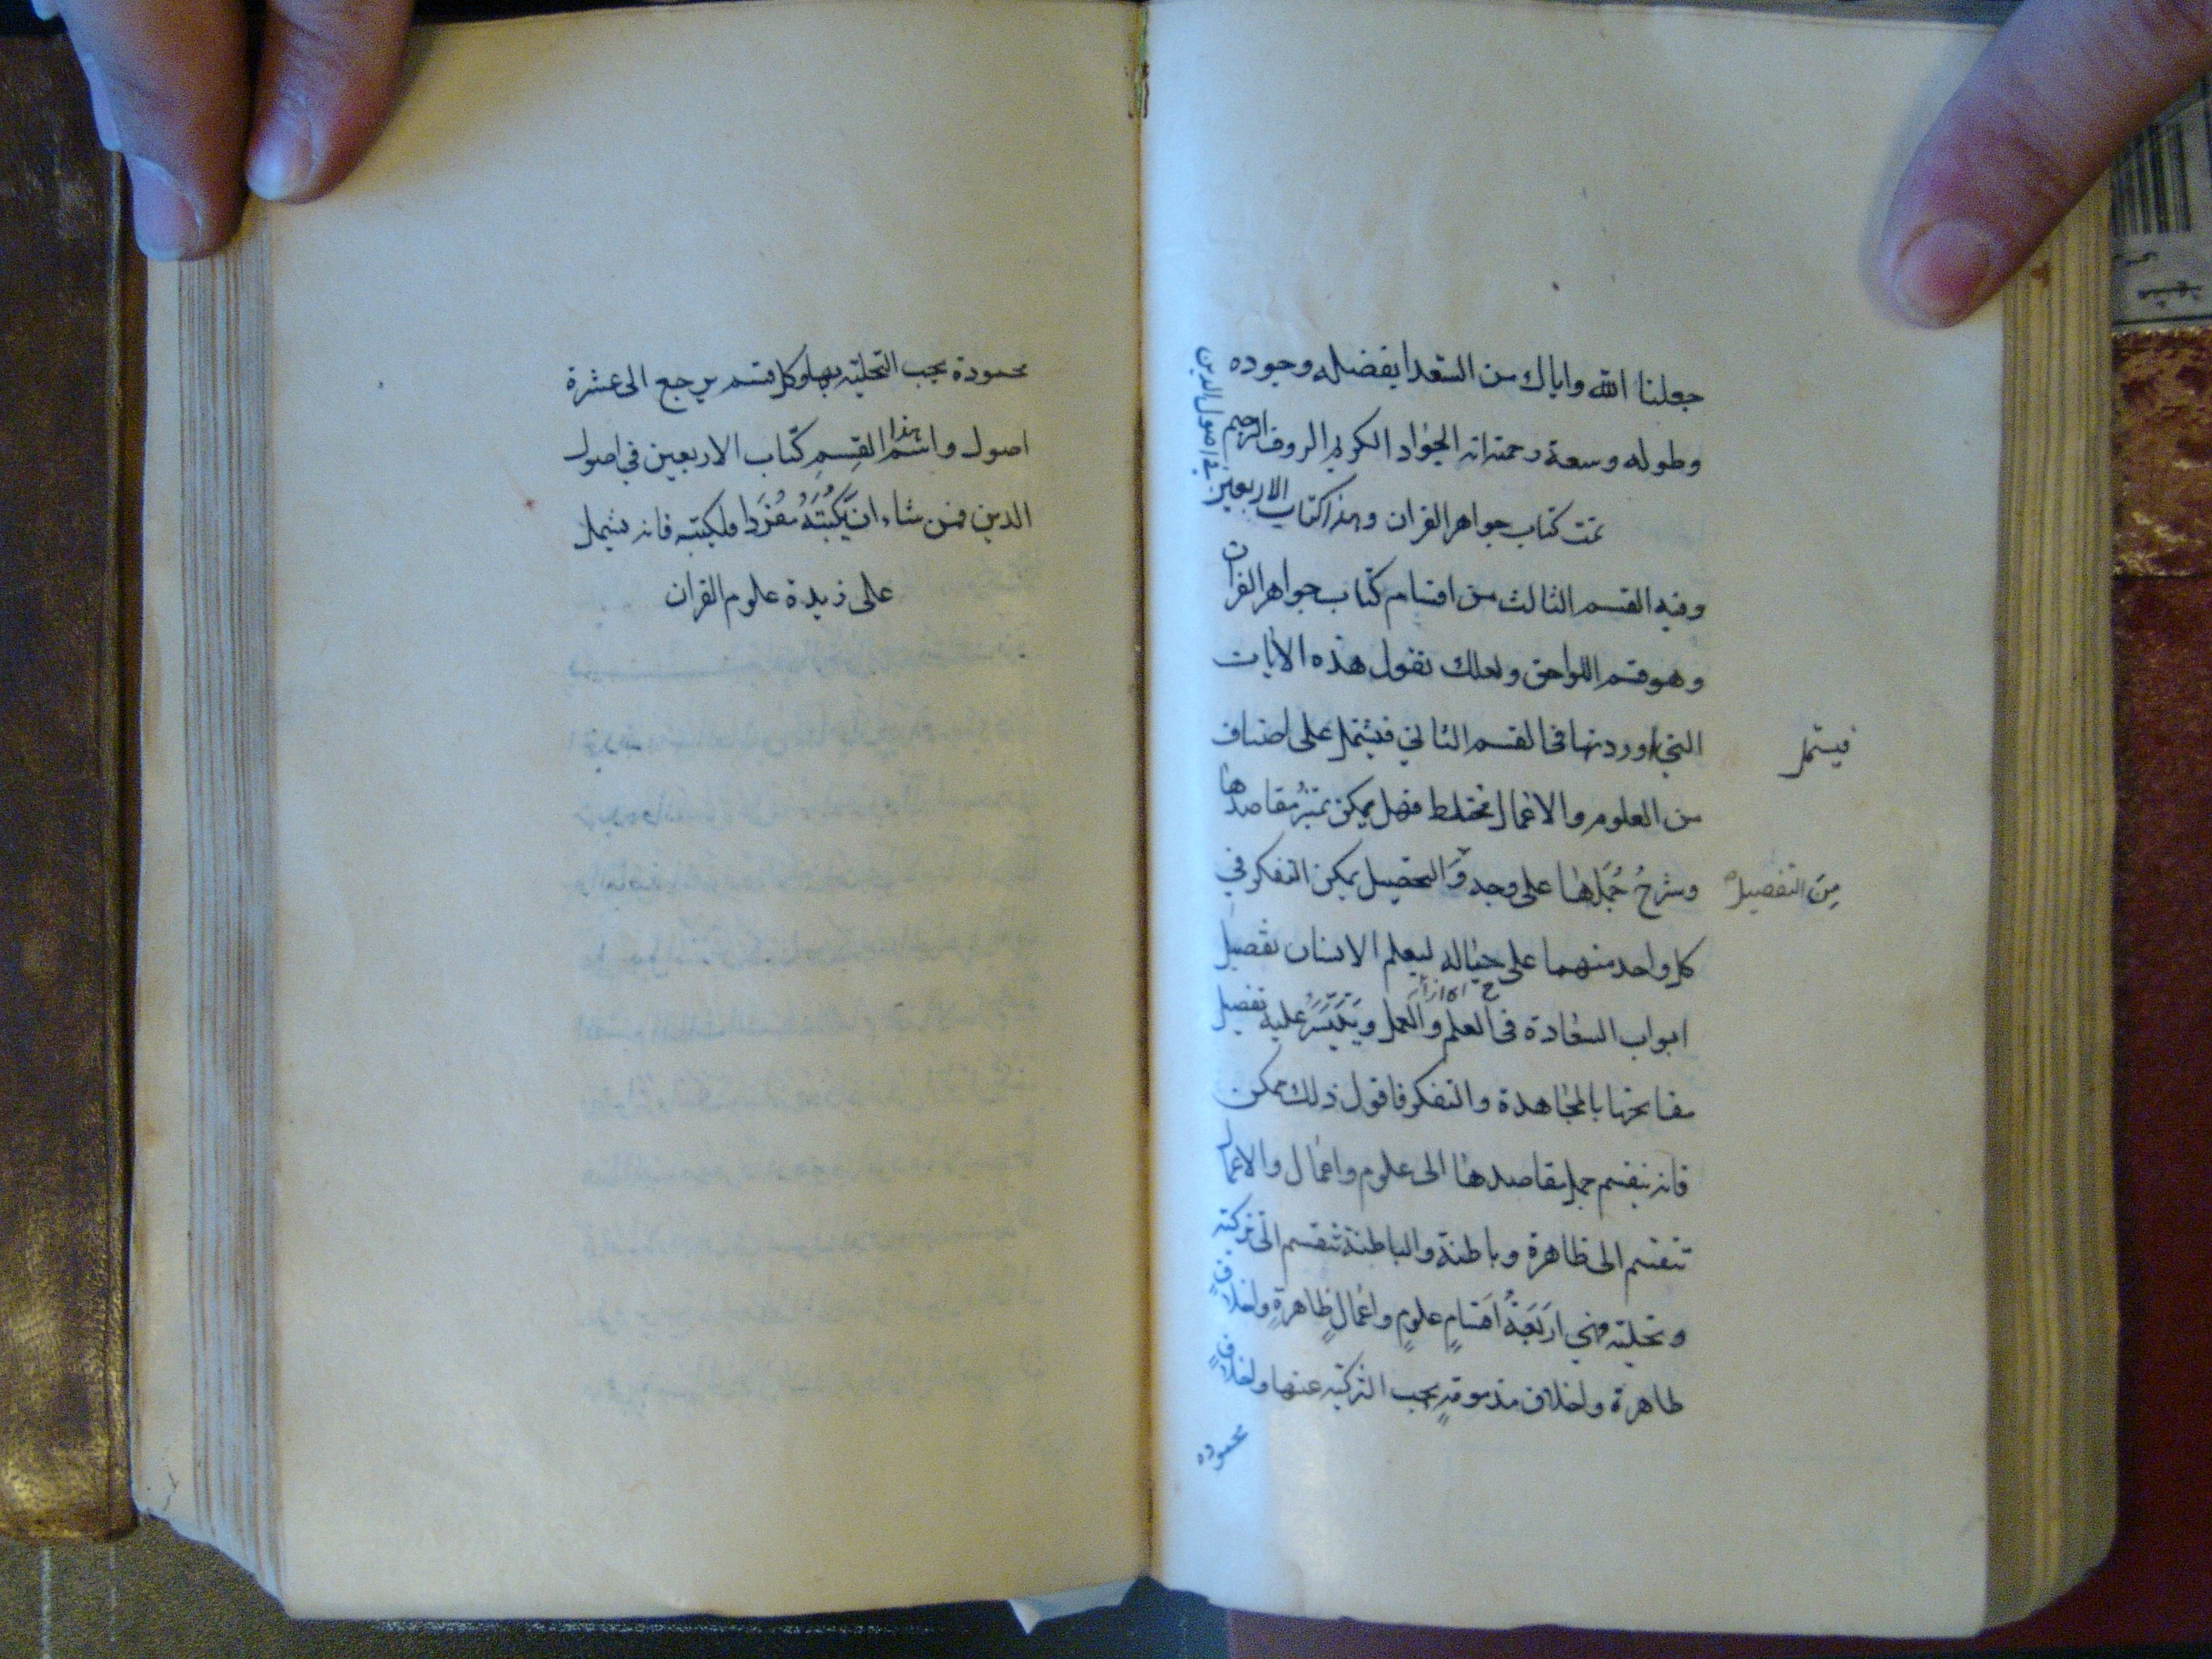 جعلنا الله واياك من السعدا بفضله وجوده
وطوله وسعة رحمته انه الجواد الكريم الروف الرحيم
تمت كتاب جواهر القران وهذا كتاب الاربعين في اصول الدين
وفيه القسم الثالث من اقسام كتاب جواهر القران
وهو قسم اللواحق ولعلك تقول هذه الايات
التي اوردتها في القسم الثاني فيشتمل على اصناف
فيشتمل
من العلوم والاعمال مختلط فهل يمكن تميز مقاصدها
وشرح جملها على وجه والتحصيل يمكن التفكر في
من التفصيل
كل واحد منهما على حياله ليعلم الانسان تفصيل
ابواب السعادة في العلم والعمل ويتيسر عليه تفصيل
مفاتحتها بالمجاهدة والتفكر فاقول ذلك ممكن
فانه ينقسم جمل مقاصدها الى علوم واعمال والاعمال
تنقسم الى ظاهرة وباطنة والباطنة تنقسم الى تزكية
وتحلية وهي اربعة اقسام علوم واعمال ظاهرة واخلاق
ظاهرة واخلاق مذمومة يجب التزكية عنها واخلاق
محموده
محمودة يجب التحلية بها وكل قسم يرجع الى عشرة
اصول واسم هذا القسم كتاب الاربعين في اصول
الدين فمن شاء ان يكتبه مفردا فليكتبه فانه يشمل
على زبدة علوم القران